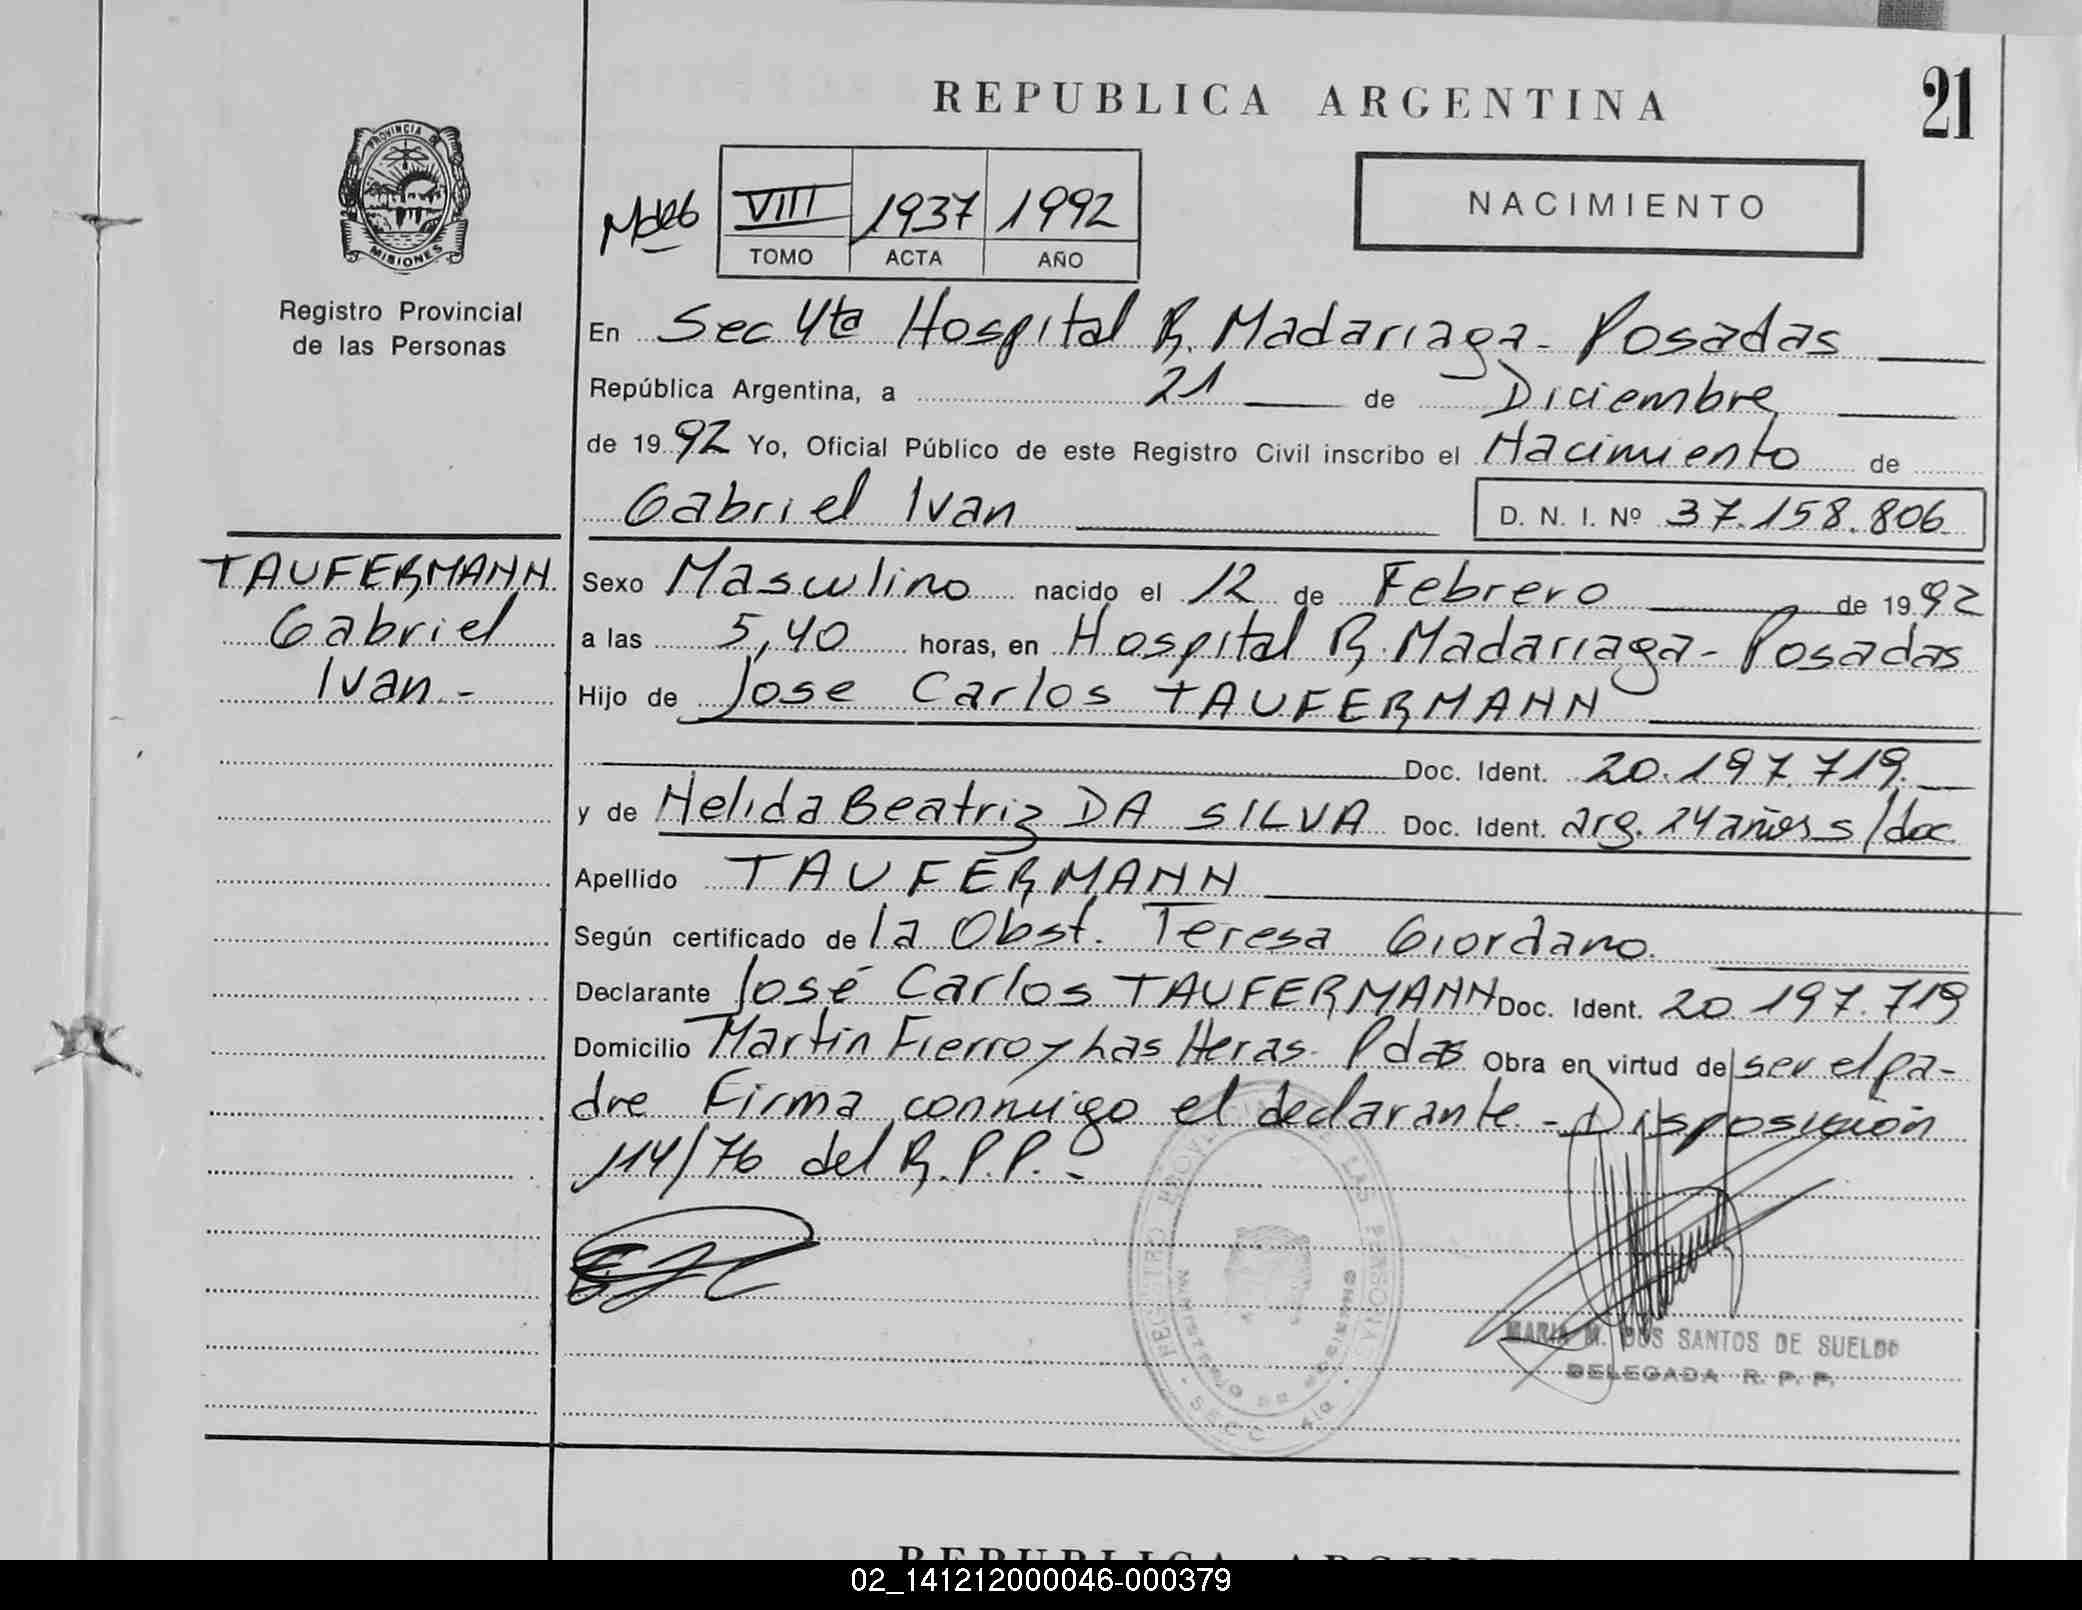 REPUBLICA ARGENTINA
21
PROVINCIA DE
MISIONES
Registro Provincial
de las Personas
VIII 1937 1992
TOMO ACTA AÑO
NACIMIENTO
En Sec 4ta Hospital R. Madariaga - Posadas
República Argentina, a 21 de Diciembre
de 1992 Yo, Oficial Público de este Registro Civil inscribo el Nacimiento de
Gabriel Ivan D. N. I. Nº 37.158.806
TAUFERMANN
Gabriel
Ivan.-
Sexo Masculino nacido el 12 de Febrero de 1992
a las 5,40 horas, en Hospital R. Madariaga - Posadas
Hijo de Jose Carlos TAUFERMANN
Doc. Ident. 20.197.719.
y de Nelida Beatriz DA SILVA Doc. Ident. arg. 24 años s/doc
Apellido TAUFERMANN
Según certificado de la Obst. Teresa Giordano.
Declarante José Carlos TAUFERMANN Doc. Ident. 20.197.719
Domicilio Martin Fierro y Las Heras - Pdas Obra en virtud de ser el pa-
dre Firma conmigo el declarante - Disposición
114/76 del R.P.P.-
REGISTRO PROVINCIAL DE LAS PERSONAS
MARIA M. DOS SANTOS DE SUELDO
DELEGADA R. P. P.
REPUBLICA ARGENTI
02_141212000046-000379